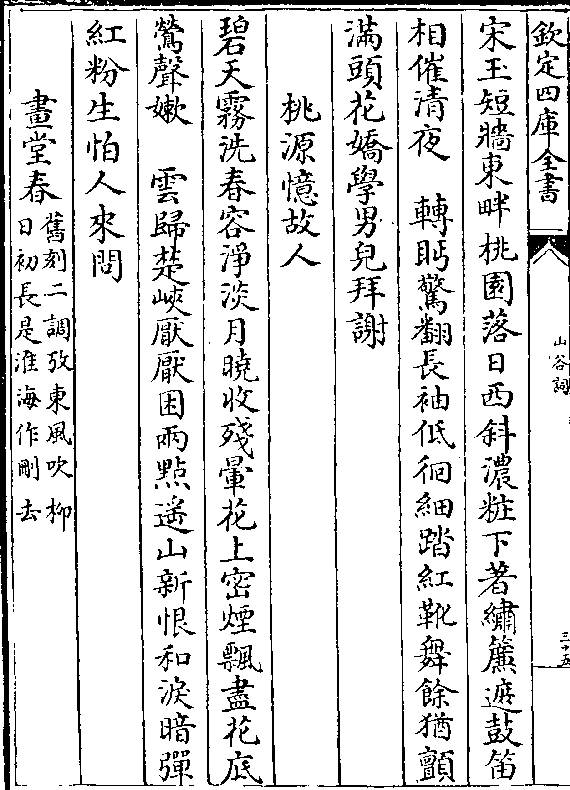 欽定四庫全書
山谷詞
三十五
宋玉短牆東畔桃園落日西斜濃粧下著繡簾遮鼓笛
相催清夜　轉眄驚翻長袖低徊細踏紅靴舞餘猶顫
滿頭花嬌學男兒拜謝
桃源憶故人
碧天霧洗春容淨淡月曉收殘暈花上密煙飄盡花底
鶯聲嫩　雲歸楚峽厭厭困兩點遙山新恨和淚暗彈
紅粉生怕人來問
畫堂春
舊刻二調攷東風吹柳
日初長是淮海作刪去